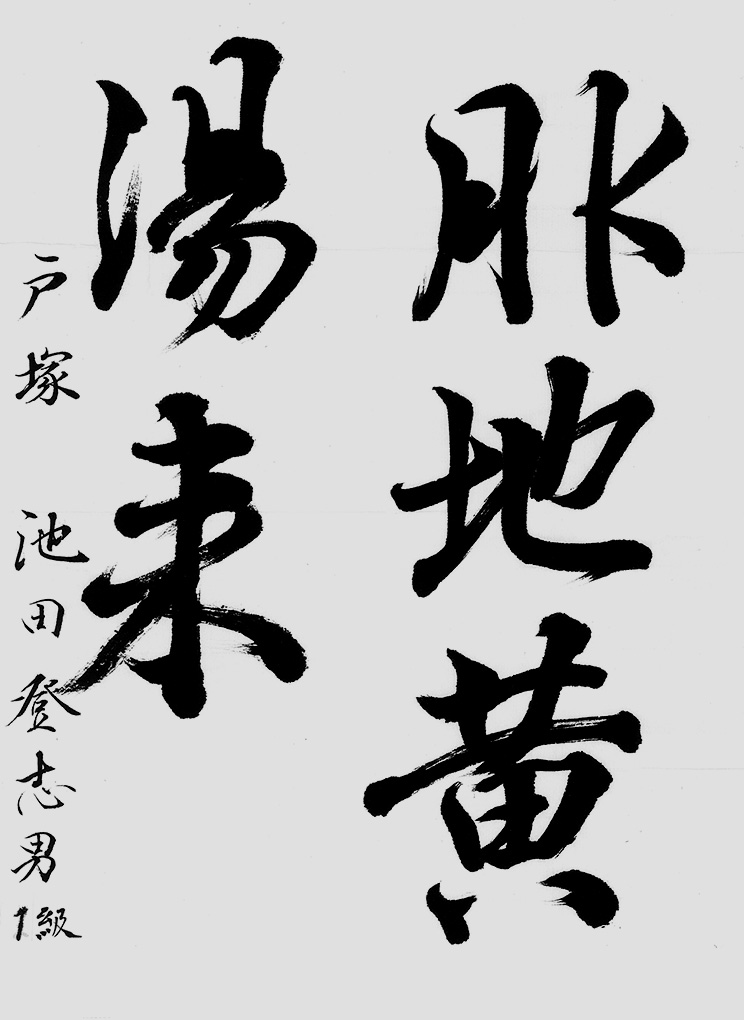 服地黄
湯来
戸塚 池田登志男 1級